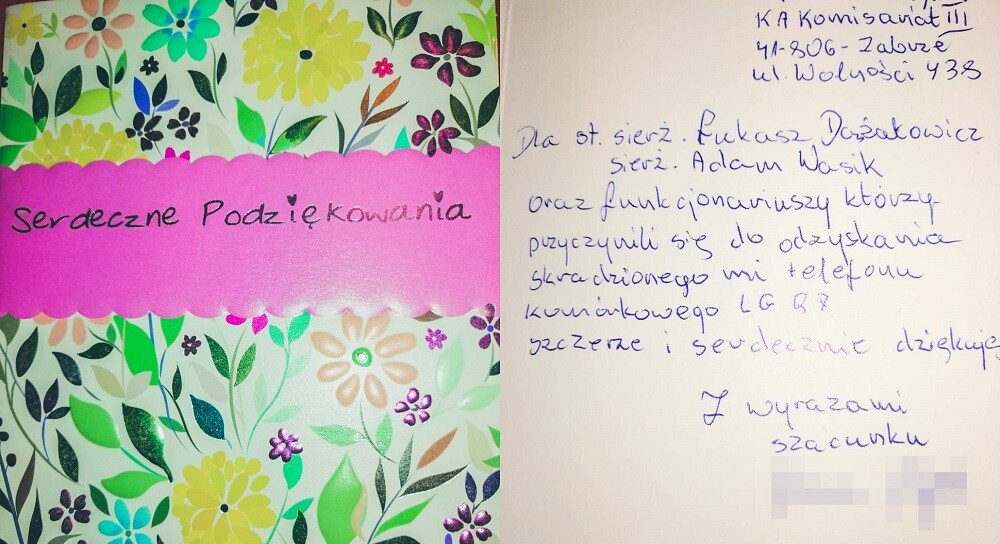 Serdeczne Podziękowania
KA Komisariat III
41-806- Zabrze
ul. Wolności 438
Dla st. sierż. Łukasz Dażakowicz
sierż. Adam Wasik
oraz funkcjonariuszy którzy
przyczynili się do odzyskania
skradzionego mi telefonu
komórkowego LG
szczerze i serdecznie dziękuję
Z wyrazami
szacunku